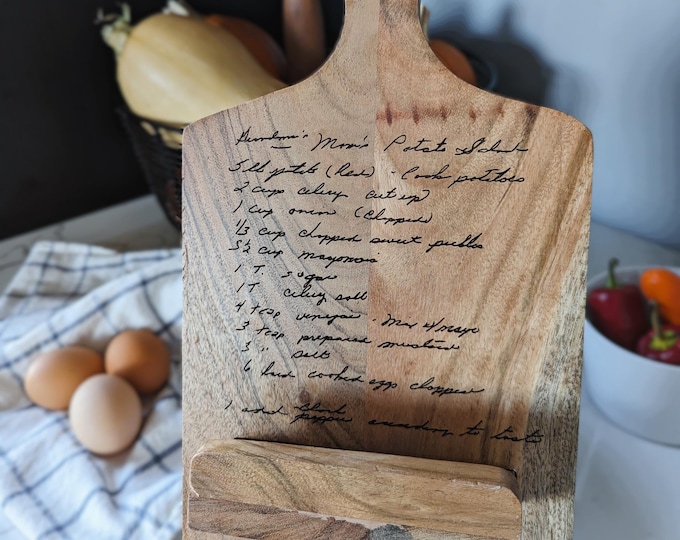 Grandma's Mom's Potato Salad
5 lb potato (Red) - Cook potatoes
2 cups celery cut up
1 cup onion (chopped)
1/3 cup chopped sweet pickles
3 1/2 cup mayonnais
1 T. sugar
1 T celery salt
4 tesp vinegar - Mix w/mayo
3 tesp prepared mustard
3 " salt
6 hard cooked eggs chopped
1 add black pepper according to taste